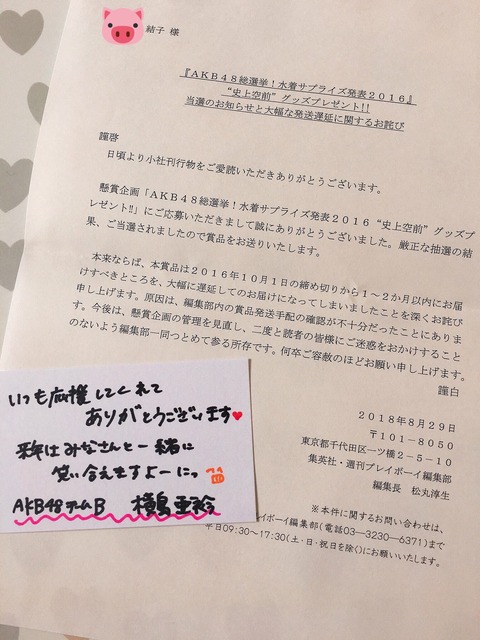 結子 様
『AKB48総選挙!水着サプライズ発表2016』
“史上空前”グッズプレゼント!!
当選のお知らせと大幅な発送遅延に関するお詫び
謹啓
日頃より小社刊行物をご愛読いただきありがとうございます。
懸賞企画「AKB48総選挙!水着サプライズ発表2016“史上空前”グッズプ
レゼント!!」にご応募いただきまして誠にありがとうございました。厳正な抽選の結
果、ご当選されましたので賞品をお送りいたします。
本来ならば、本賞品は2016年10月1日の締め切りから1~2か月以内にお届
けすべきところを、大幅に遅延してのお届けになってしまいましたことを深くお詫び
申し上げます。原因は、編集部内の賞品発送手配の確認が不十分だったことにありま
す。今後は、懸賞企画の管理を見直し、二度と読者の皆様にご迷惑をおかけすること
のないよう編集部一同つとめて参る所存です。何卒ご容赦のほどお願い申し上げます。
謹白
2018年8月29日
〒101-8050
東京都千代田区一ツ橋2-5-10
集英社・週刊プレイボーイ編集部
編集長 松丸淳生
※本件に関するお問い合わせは、
レイボーイ編集部(電話03-3230-6371)まで
平日09:30~17:30(土・日・祝日を除く)にお願いいたします。
いつも応援してくれて
ありがとうございます♥
来年はみなさんと一緒に
笑い合えますよーにっ
AKB48チームB